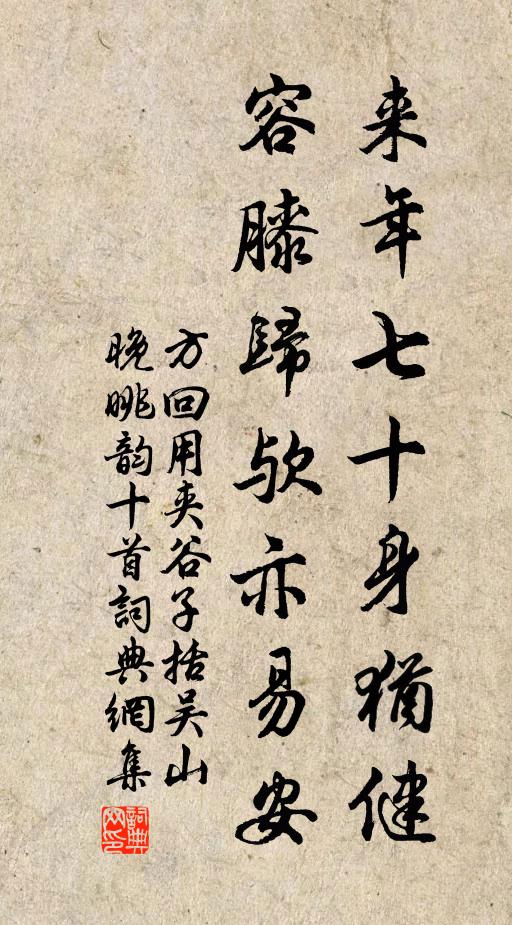 来年七十身猶健
容膝歸欤亦易安
方回用夹谷子括吴山
晚眺韵十首詞典網集
詞典
网印